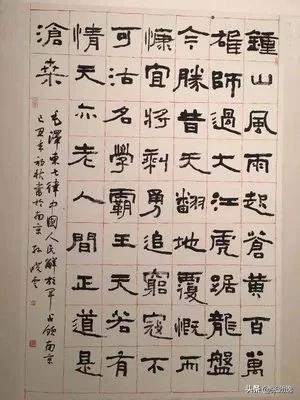 鍾山風雨起蒼黃百萬
雄師過大江虎踞龍盤
今勝昔天翻地覆慨而
慷宜將剩勇追窮寇不
可沽名學霸王天若有
情天亦老人間正道是
滄桑
毛澤東七律中國人民解放军占領南京
己丑年初秋書於南京孙晓云
头条